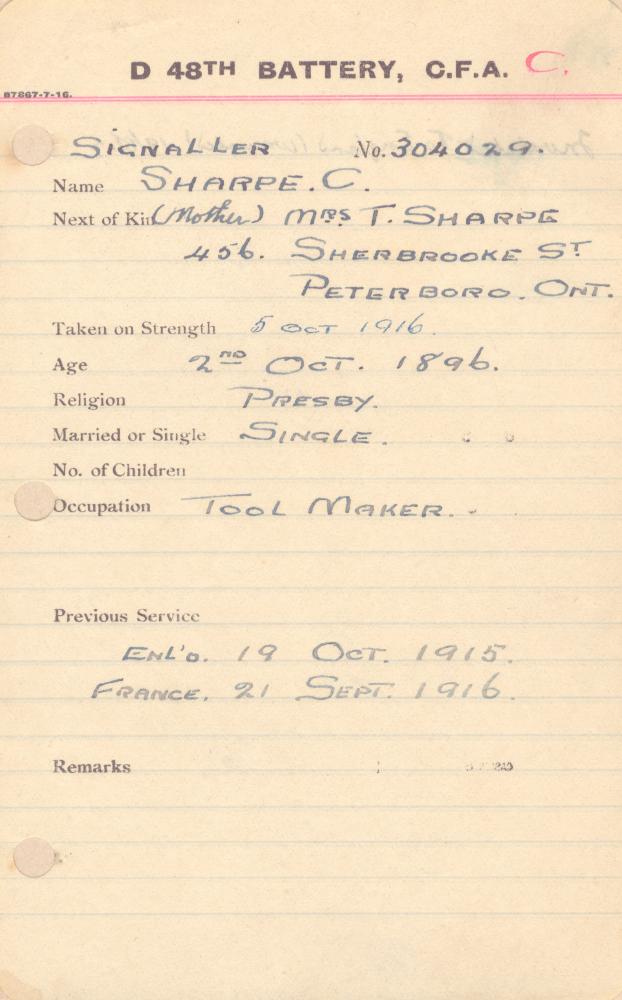 D 48TH BATTERY, C.F.A. C.
87867-7-16.
SIGNALLER No. 304029.
Name SHARPE. C.
Next of Kin (Mother) MRS T. SHARPE
456. SHERBROOKE ST
PETERBORO. ONT.
Taken on Strength 5 OCT 1916.
Age 2ND OCT. 1896.
Religion PRESBY.
Married or Single SINGLE.
No. of Children
Occupation TOOL MAKER.
Previous Service
ENL'D. 19 OCT. 1915.
FRANCE. 21 SEPT. 1916.
Remarks